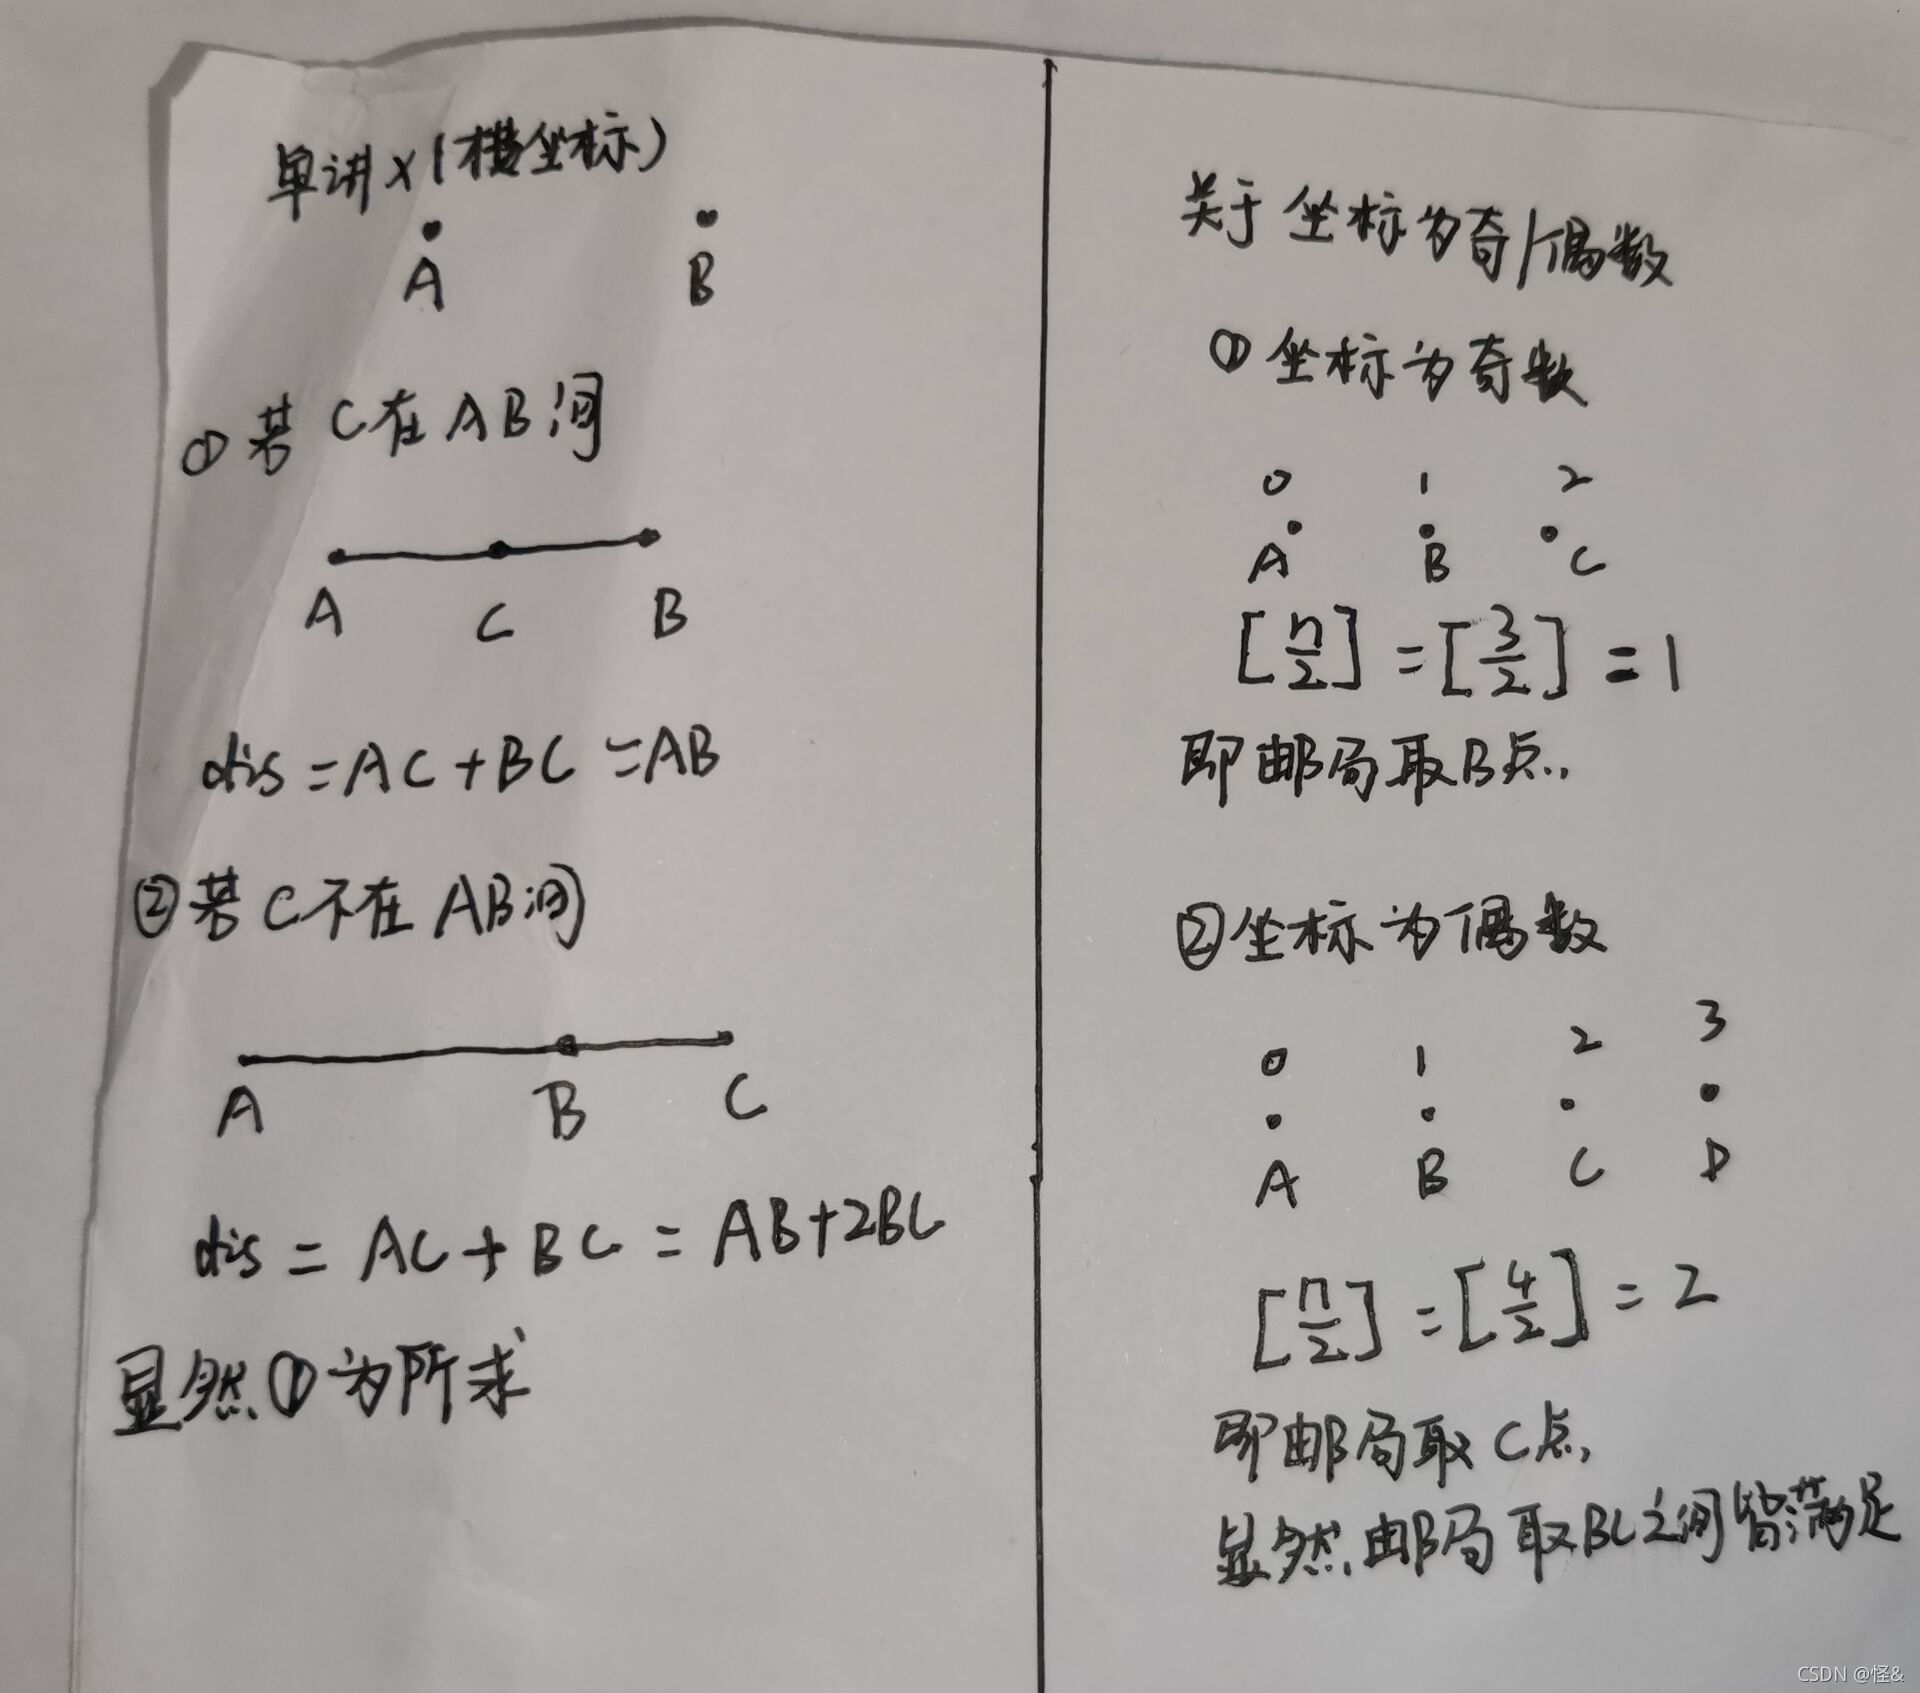 单讲x(横坐标)
A B
①若C在AB间
A C B
dis=AC+BC=AB
②若C不在AB间
A B C
dis=AC+BC=AB+2BC
显然①为所求
关于坐标为奇/偶数
①坐标为奇数
0 1 2
A B C
[n/2]=[3/2]=1
即邮局取B点.
②坐标为偶数
0 1 2 3
A B C D
[n/2]=[4/2]=2
即邮局取C点,
显然,邮局取BC之间皆满足
CSDN @怪&